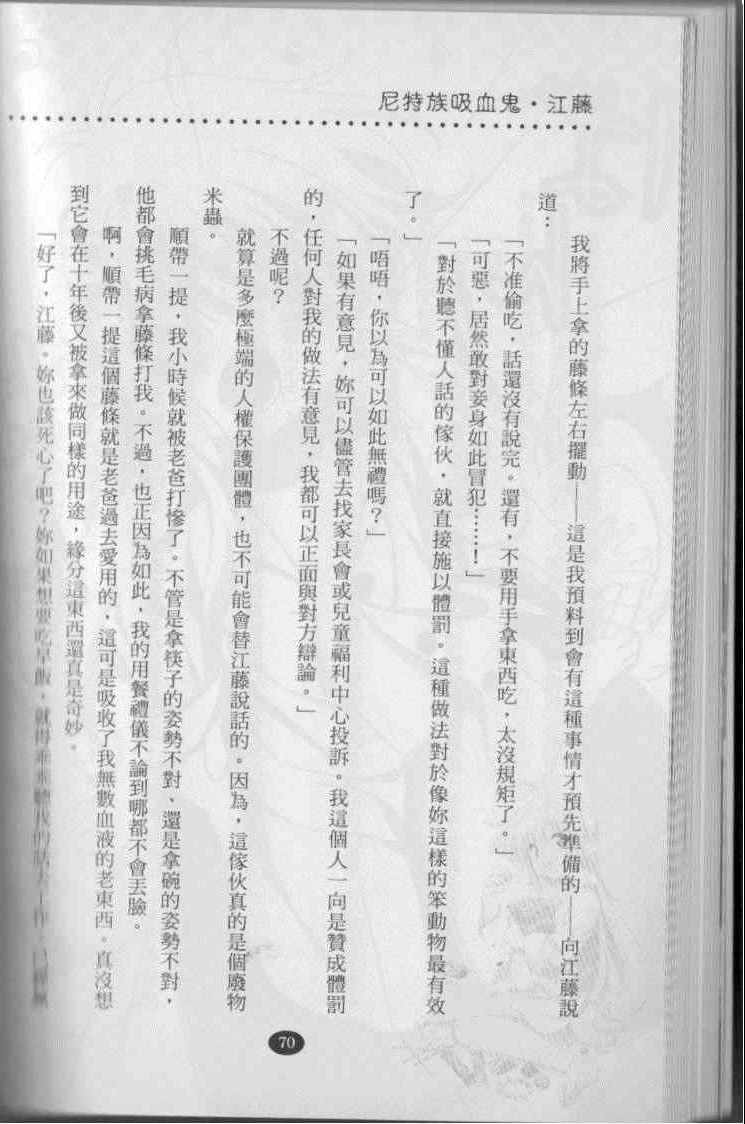 尼特族吸血鬼・江藤
我將手上拿的藤條左右擺動——這是我預料到會有這種事情才預先準備的——向江藤說
道：
「不准偷吃，話還沒有說完。還有，不要用手拿東西吃，太沒規矩了。」
「可惡，居然敢對妾身如此冒犯……！」
「對於聽不懂人話的傢伙，就直接施以體罰。這種做法對於像妳這樣的笨動物最有效
了。」
「唔唔，你以為可以如此無禮嗎？」
「如果有意見，妳可以儘管去找家長會或兒童福利中心投訴。我這個人一向是贊成體罰
的，任何人對我的做法有意見，我都可以正面與對方辯論。」
不過呢？
就算是多麼極端的人權保護團體，也不可能會替江藤說話的。因為，這傢伙真的是個廢物
米蟲。
順帶一提，我小時候就被老爸打慘了。不管是拿筷子的姿勢不對、還是拿碗的姿勢不對，
他都會挑毛病拿藤條打我。不過，也正因為如此，我的用餐禮儀不論到哪都不會丟臉。
啊，順帶一提這個藤條就是老爸過去愛用的，這可是吸收了我無數血液的老東西。真沒想
到它會在十年後又被拿來做同樣的用途，緣分這東西還真是奇妙。
「好了，江藤。妳也該死心了吧？妳如果想要吃早飯，就得乖乖聽我的話去工作。
70